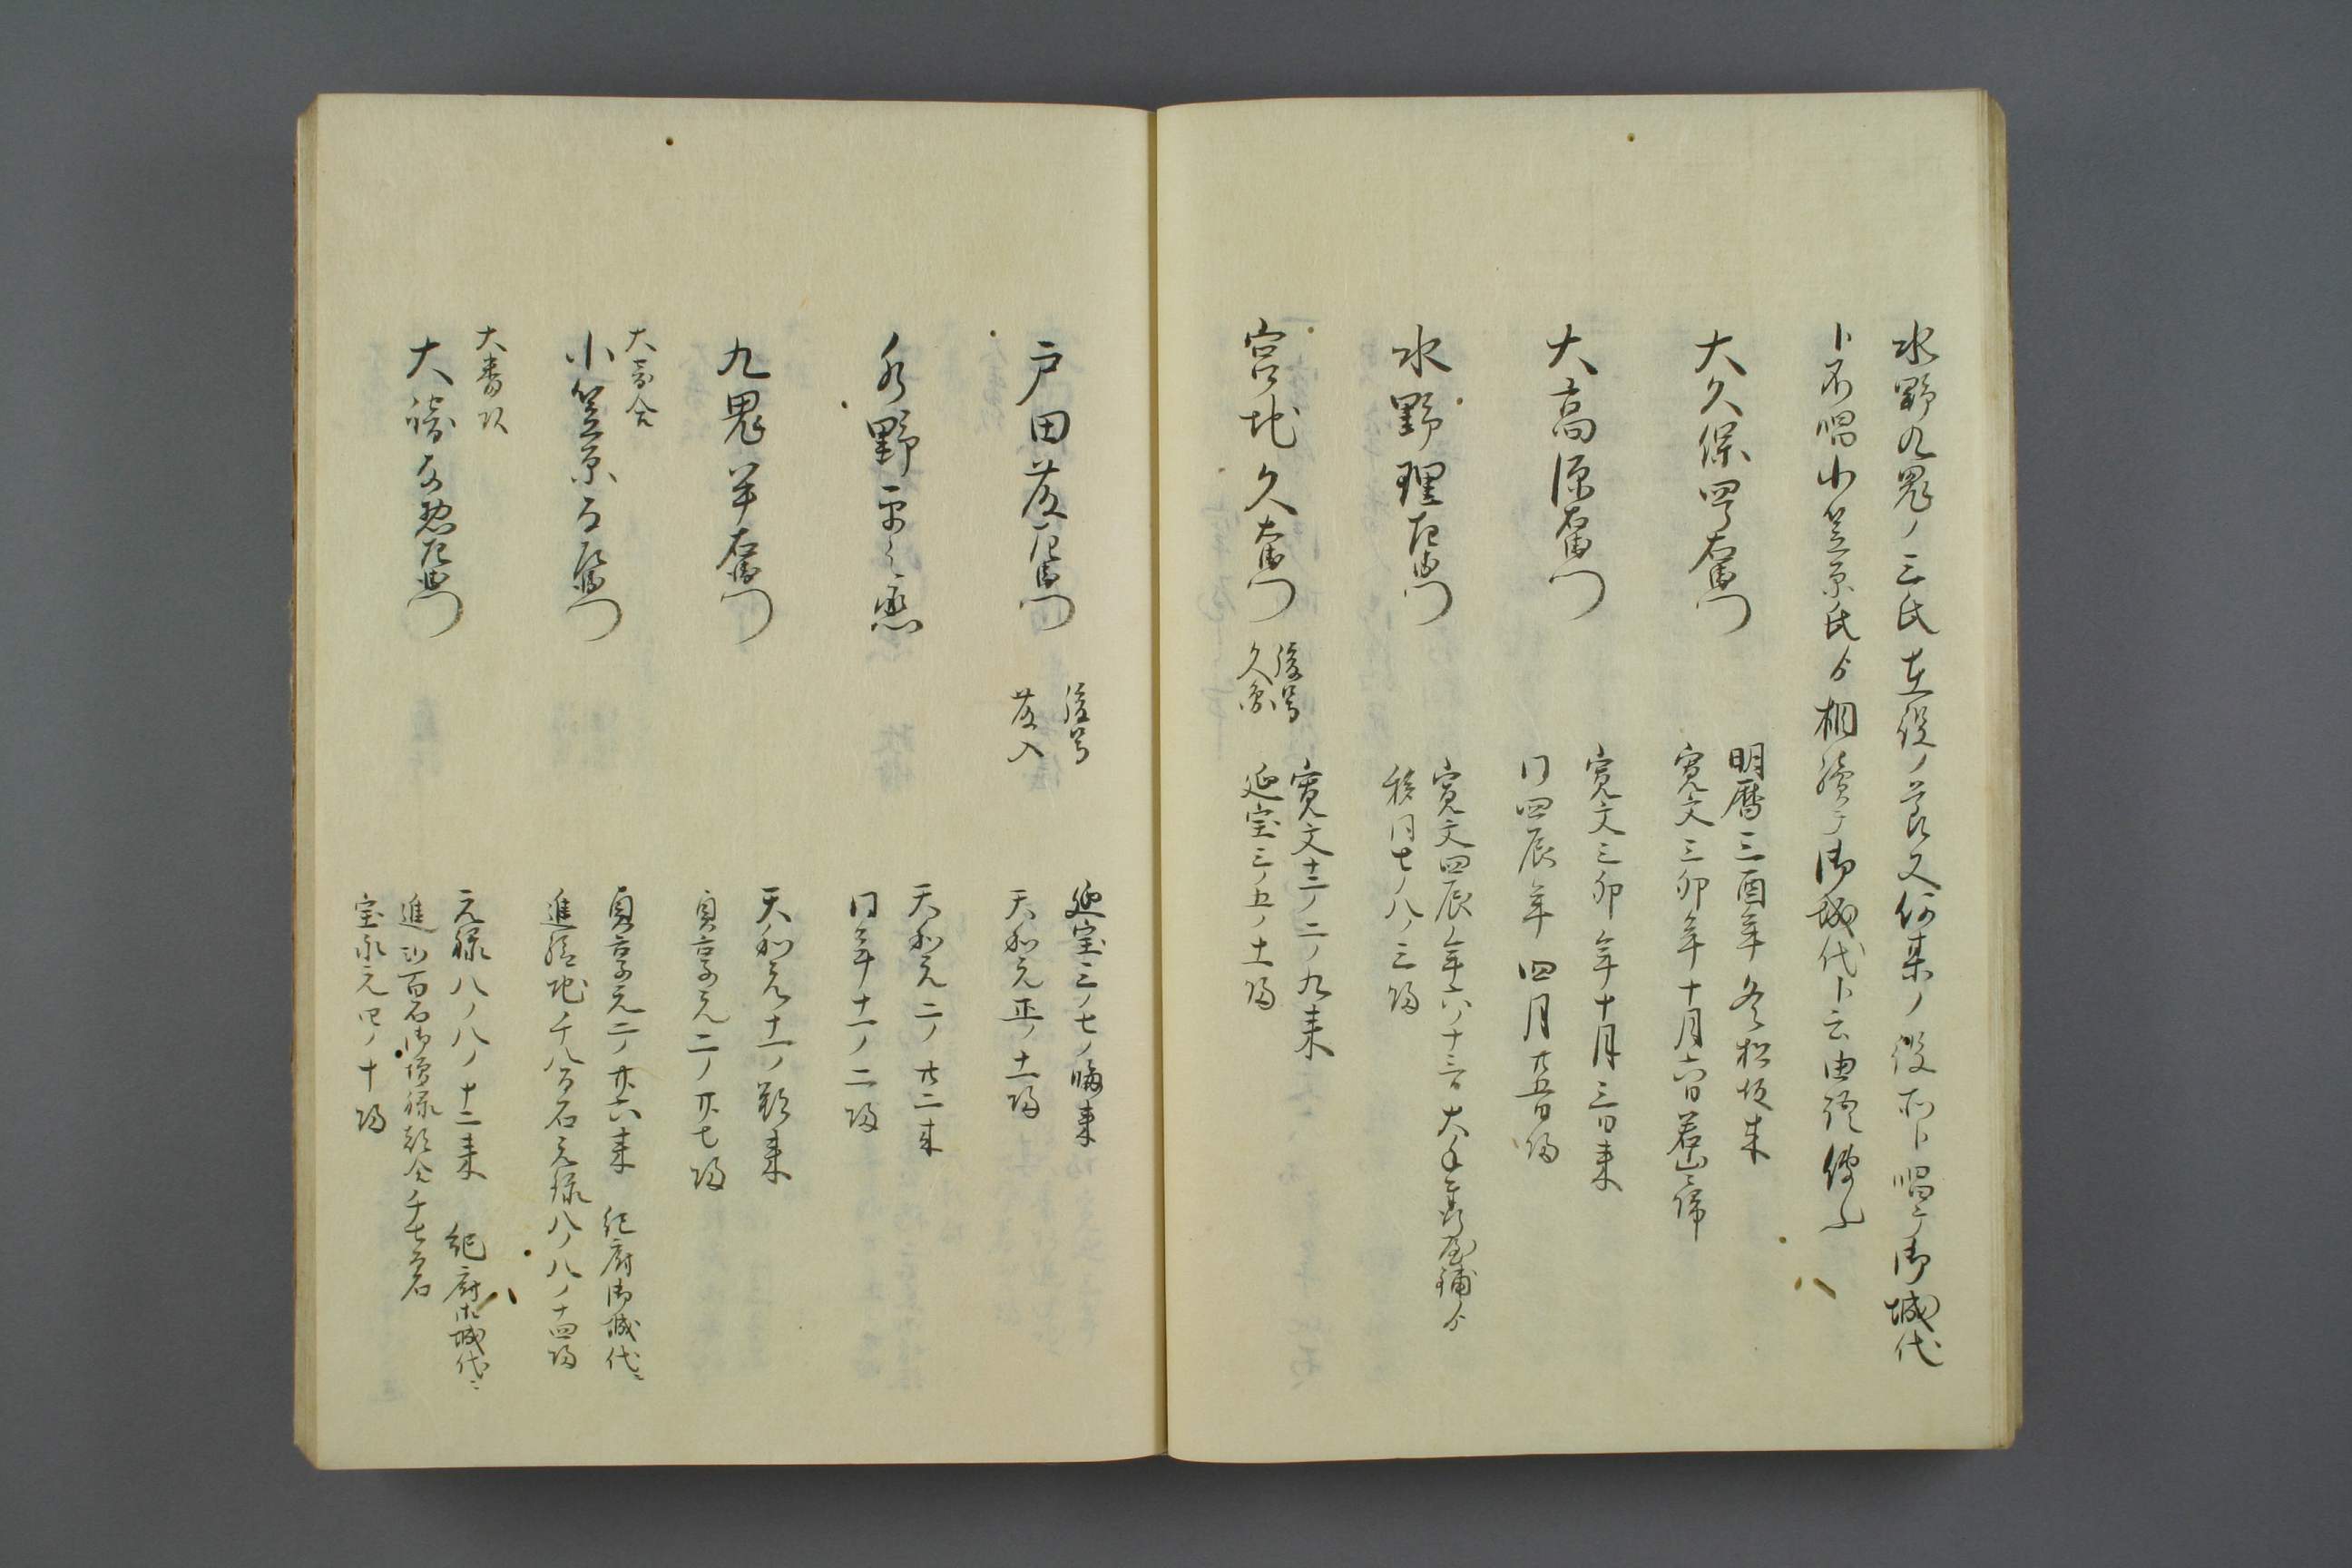 水野九鬼ノ三氏在役ノ節又何某ノ役所ト唱テ御城代
ト不唱小笠原氏ゟ相續テ御城代ト云由語傳ふ
大久保四郎右衛門
明暦三酉年冬松坂来
寛文三卯年十月六日若山ニ帰
大高源右衛門
寛文三卯年十月三日来
同四辰年四月廿五日帰
水野理左衛門
寛文四辰ノ年六ノ十三日大手番屋舗ゟ
移同七ノ八ノ三帰
宮地久右衛門
後号
久斎
寛文十二ノ二ノ九来
延宝三ノ五ノ十一帰
戸田藤左衛門
後号
藤入
延宝三ノ七ノ晦来
天和元正ノ十一帰
水野平之丞
天和元二ノ廿二来
同年十一ノ二帰
九鬼半右衛門
天和元十一ノ朔来
貞享元二ノ廿七帰
大寄合
小笠原与左衛門
貞享元二ノ廿六来 紀府御城代ニ
進紀地千八百石元禄八ノ八ノ十四帰
大番頭
大橋太郎左衛門
元禄八ノ八ノ十二来 紀府御城代ニ
進弐百石御増禄都合千七百石
宝永元四ノ十帰